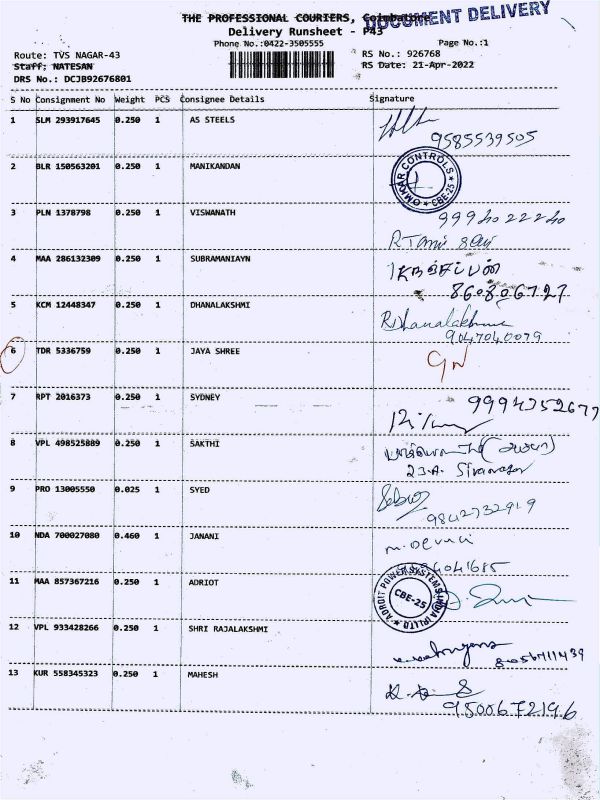 THE PROFESSIONAL COURIERS, Coimbatore
DOCUMENT DELIVERY
Delivery Runsheet - P43
Phone No.:0422-3505555
Page No.:1
Route: TVS NAGAR-43
RS No.: 926768
Staff: NATESAN
RS Date: 21-Apr-2022
DRS No.: DCJB92676801
S No Consignment No Weight PCS Consignee Details Signature
1 SLM 293917645 0.250 1 AS STEELS
9585539505
2 BLR 150563201 0.250 1 MANIKANDAN
OMKKAR CONTROLS CBE-25
3 PLN 1378798 0.250 1 VISWANATH
9994022240
4 MAA 286132309 0.250 1 SUBRAMANIAYN
5 KCM 12448347 0.250 1 DHANALAKSHMI
R.Dhanalakshmi
9047040079
6 TDR 5336759 0.250 1 JAYA SHREE
7 RPT 2016373 0.250 1 SYDNEY
8 VPL 498525889 0.250 1 SAKTHI
23-A. Sivanagar
9 PRO 13005550 0.025 1 SYED
9842732919
10 NDA 700027080 0.460 1 JANANI
11 MAA 857367216 0.250 1 ADRIOT
ADROIT POWER SYSTEMS INDIA (P) LTD CBE-25
12 VPL 933428266 0.250 1 SHRI RAJALAKSHMI
13 KUR 558345323 0.250 1 MAHESH
9500672196